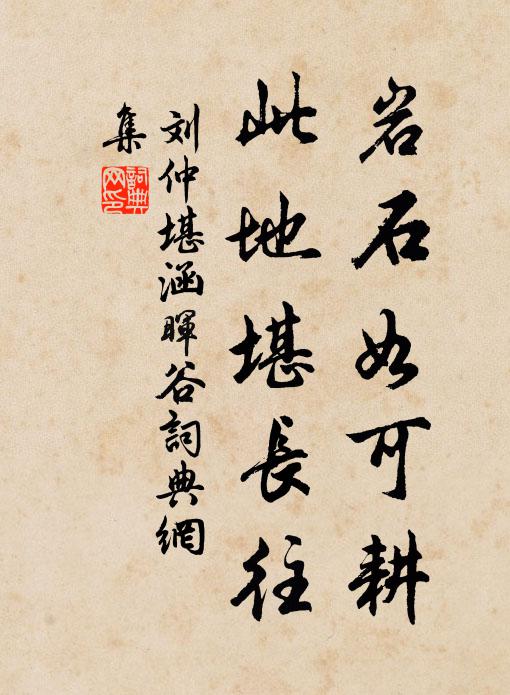 岩石如可耕
此地堪長往
刘仲堪涵暉谷詞典網
集
詞典网印